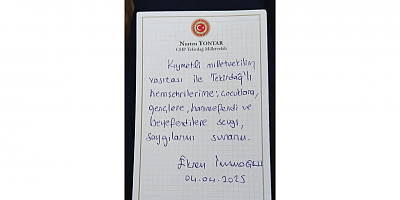 Nurten YONTAR
CHP Tekirdağ Milletvekili
Kıymetli milletvekilim
vasıtası ile Tekirdağ'lı
hemşehrilerime; çocuklara,
gençlere, hanımefendi ve
beyefendilere sevgi,
saygılarımı sunarım.
Ekrem İmamoğlu
04.04.2025